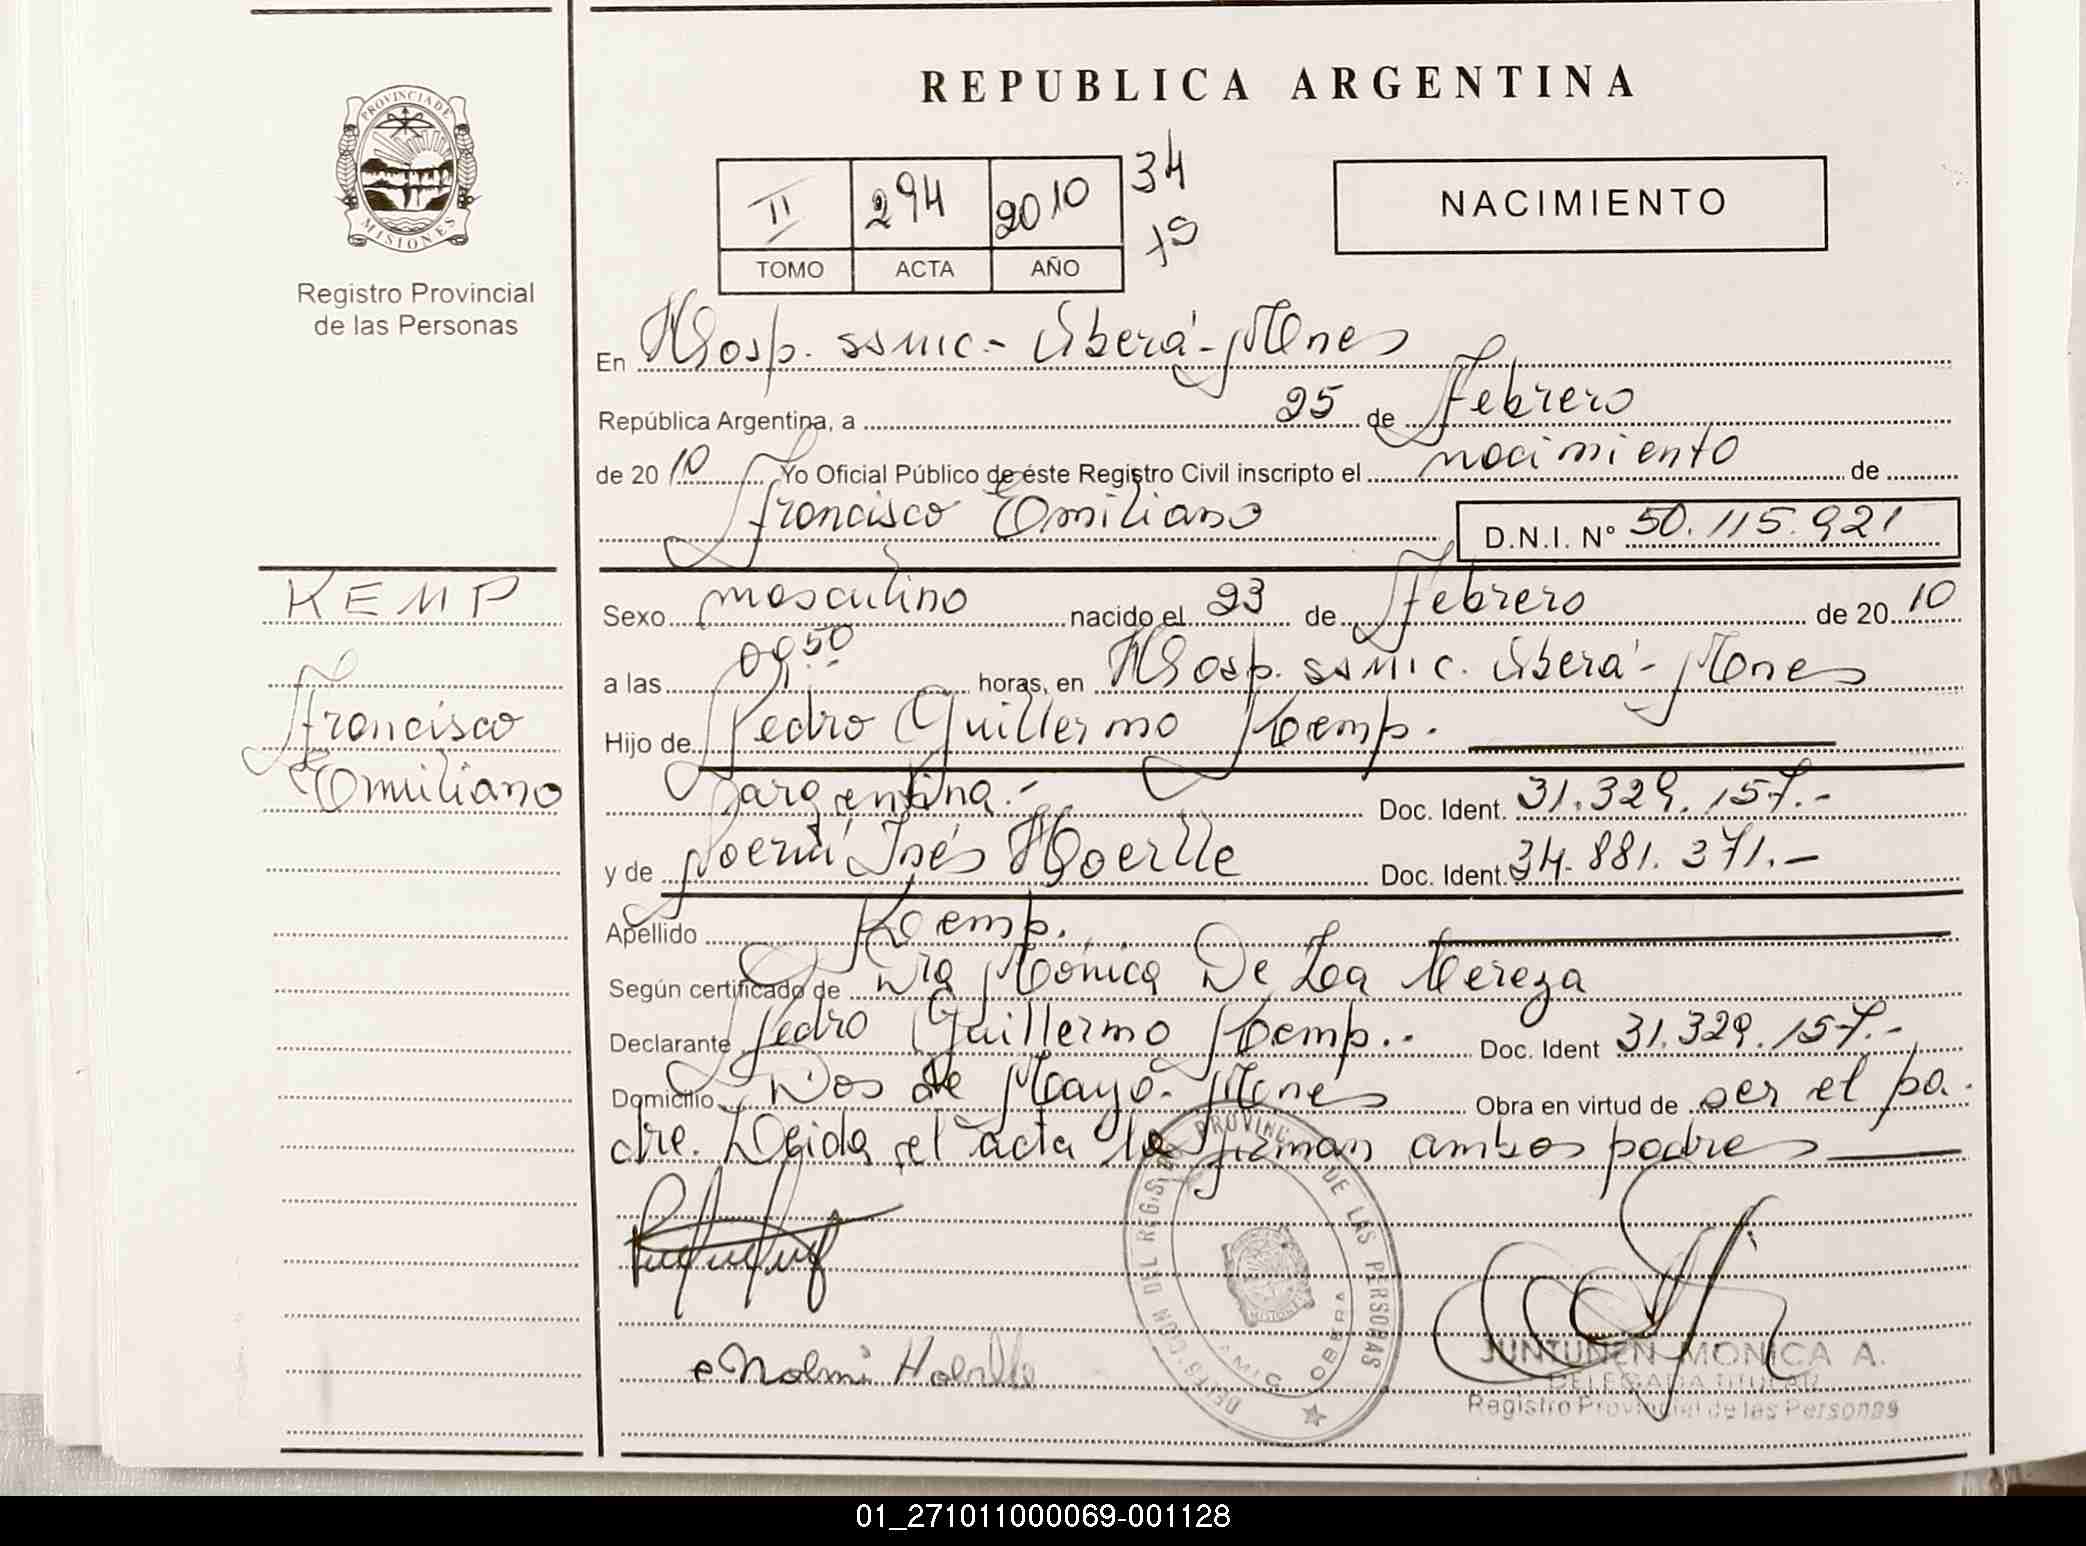 REPUBLICA ARGENTINA
PROVINCIA DE
MISIONES
Registro Provincial
de las Personas
II 294 2010 34
TOMO ACTA AÑO
NACIMIENTO
En Hosp. SSMIC.- Oberá-Mnes
República Argentina, a 25 de Febrero
de 2010 Yo Oficial Público de éste Registro Civil inscripto el nacimiento de
Francisco Emiliano D.N.I. Nº 50.115.921
KEMP
Francisco
Emiliano
Sexo masculino nacido el 23 de Febrero de 2010
a las 09,50 horas, en Hosp. SSMIC. Oberá-Mnes
Hijo de Pedro Guillermo Kemp.
argentina.- Doc. Ident. 31.329.157.-
y de Noemí Inés Hoerlle Doc. Ident. 34.881.371.-
Apellido Kemp.
Según certificado de Dra Mónica De La
Declarante Pedro Guillermo Kemp.. Doc. Ident 31.329.157.-
Domicilio Dos de Mayo- Mnes Obra en virtud de ser el pa-
dre. Leida el acta la firman ambos padres
Noemi Hoerlle
PROVINCIAL DE LAS PERSONAS
OBERA
JUNTUNEN MONICA A.
DELEGADA TITULAR
Registro Provincial de las Personas
01_271011000069-001128